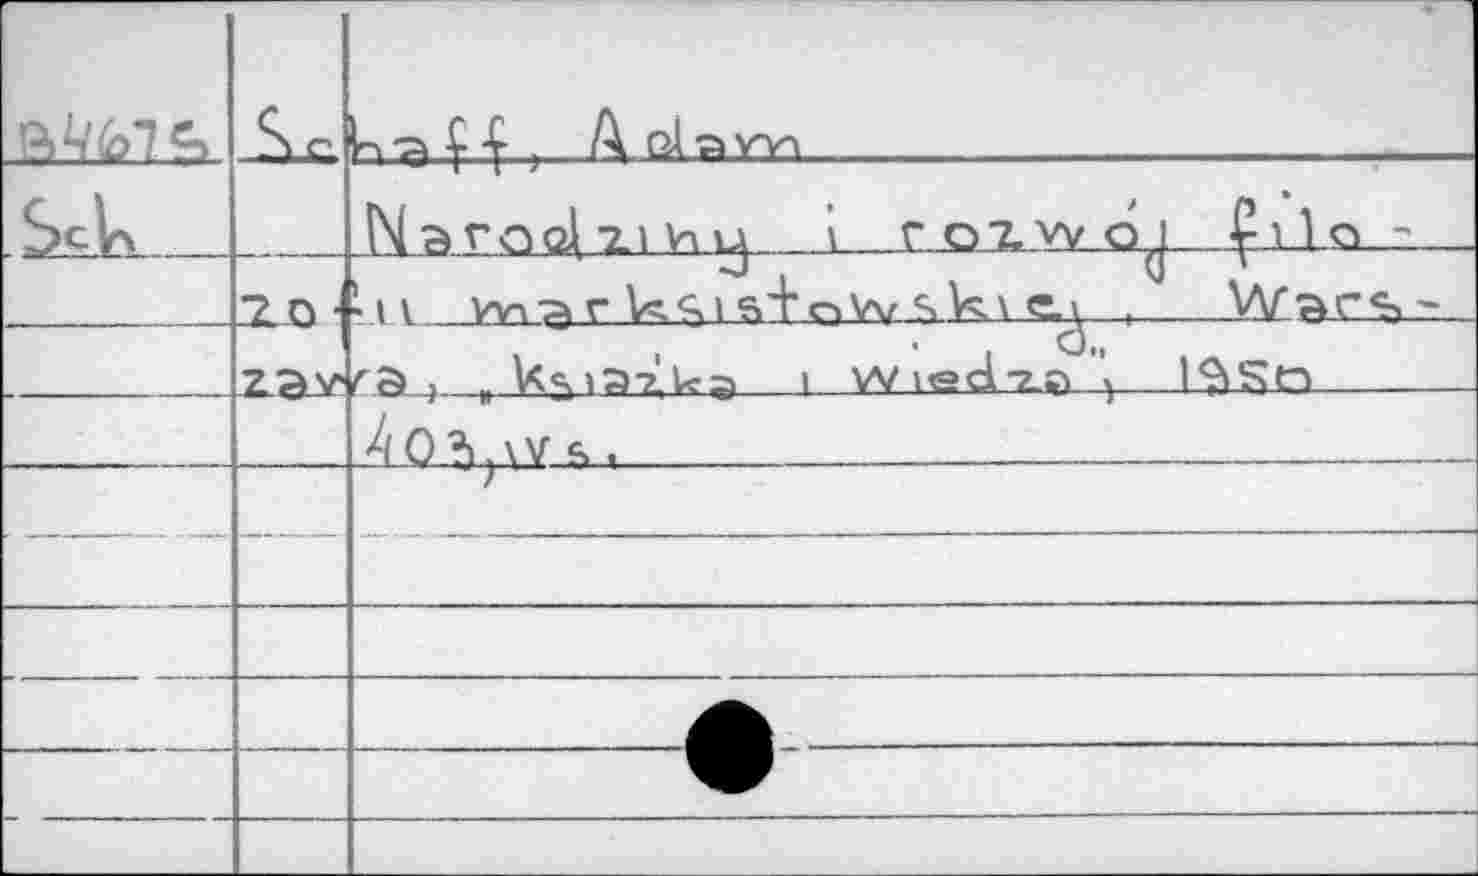 B4675 Schaff, Adam
Sch Narodziny i rozwój filo-
zofii marksistowskiej, Wars-
zawa, „Książka i wiedza", 1950
403,ws.